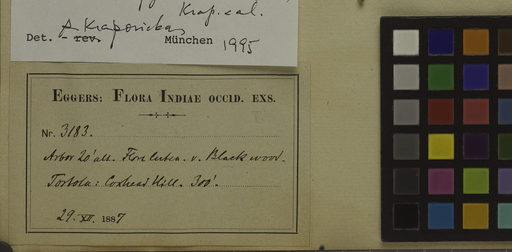 Krap. cal.
A Krapovickas
Det. - rev. München 1995
EGGERS: FLORA INDIAE OCCID. EXS.
Nr. 3183.
Arbor 20' alt. Flore luteo. v. Black wood.
Tortola: Coxhead Hill. 300'.
29. XII. 1887